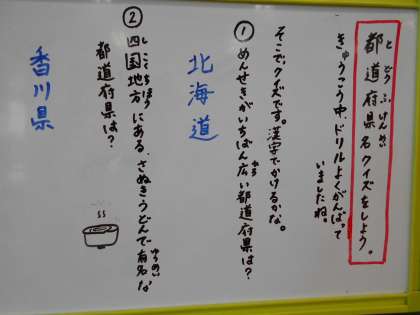 とどうふけんめい
都道府県名クイズをしよう。
きゅうこう中、ドリルよくがんばって
いましたね。
そこでクイズです。漢字でかけるかな。
①めんせきがいちばん広い都道府県は?
北海道
しこくちほう
②四国地方にある、さぬきうどんで有名な
ゆうめい
都道府県は?
香川県